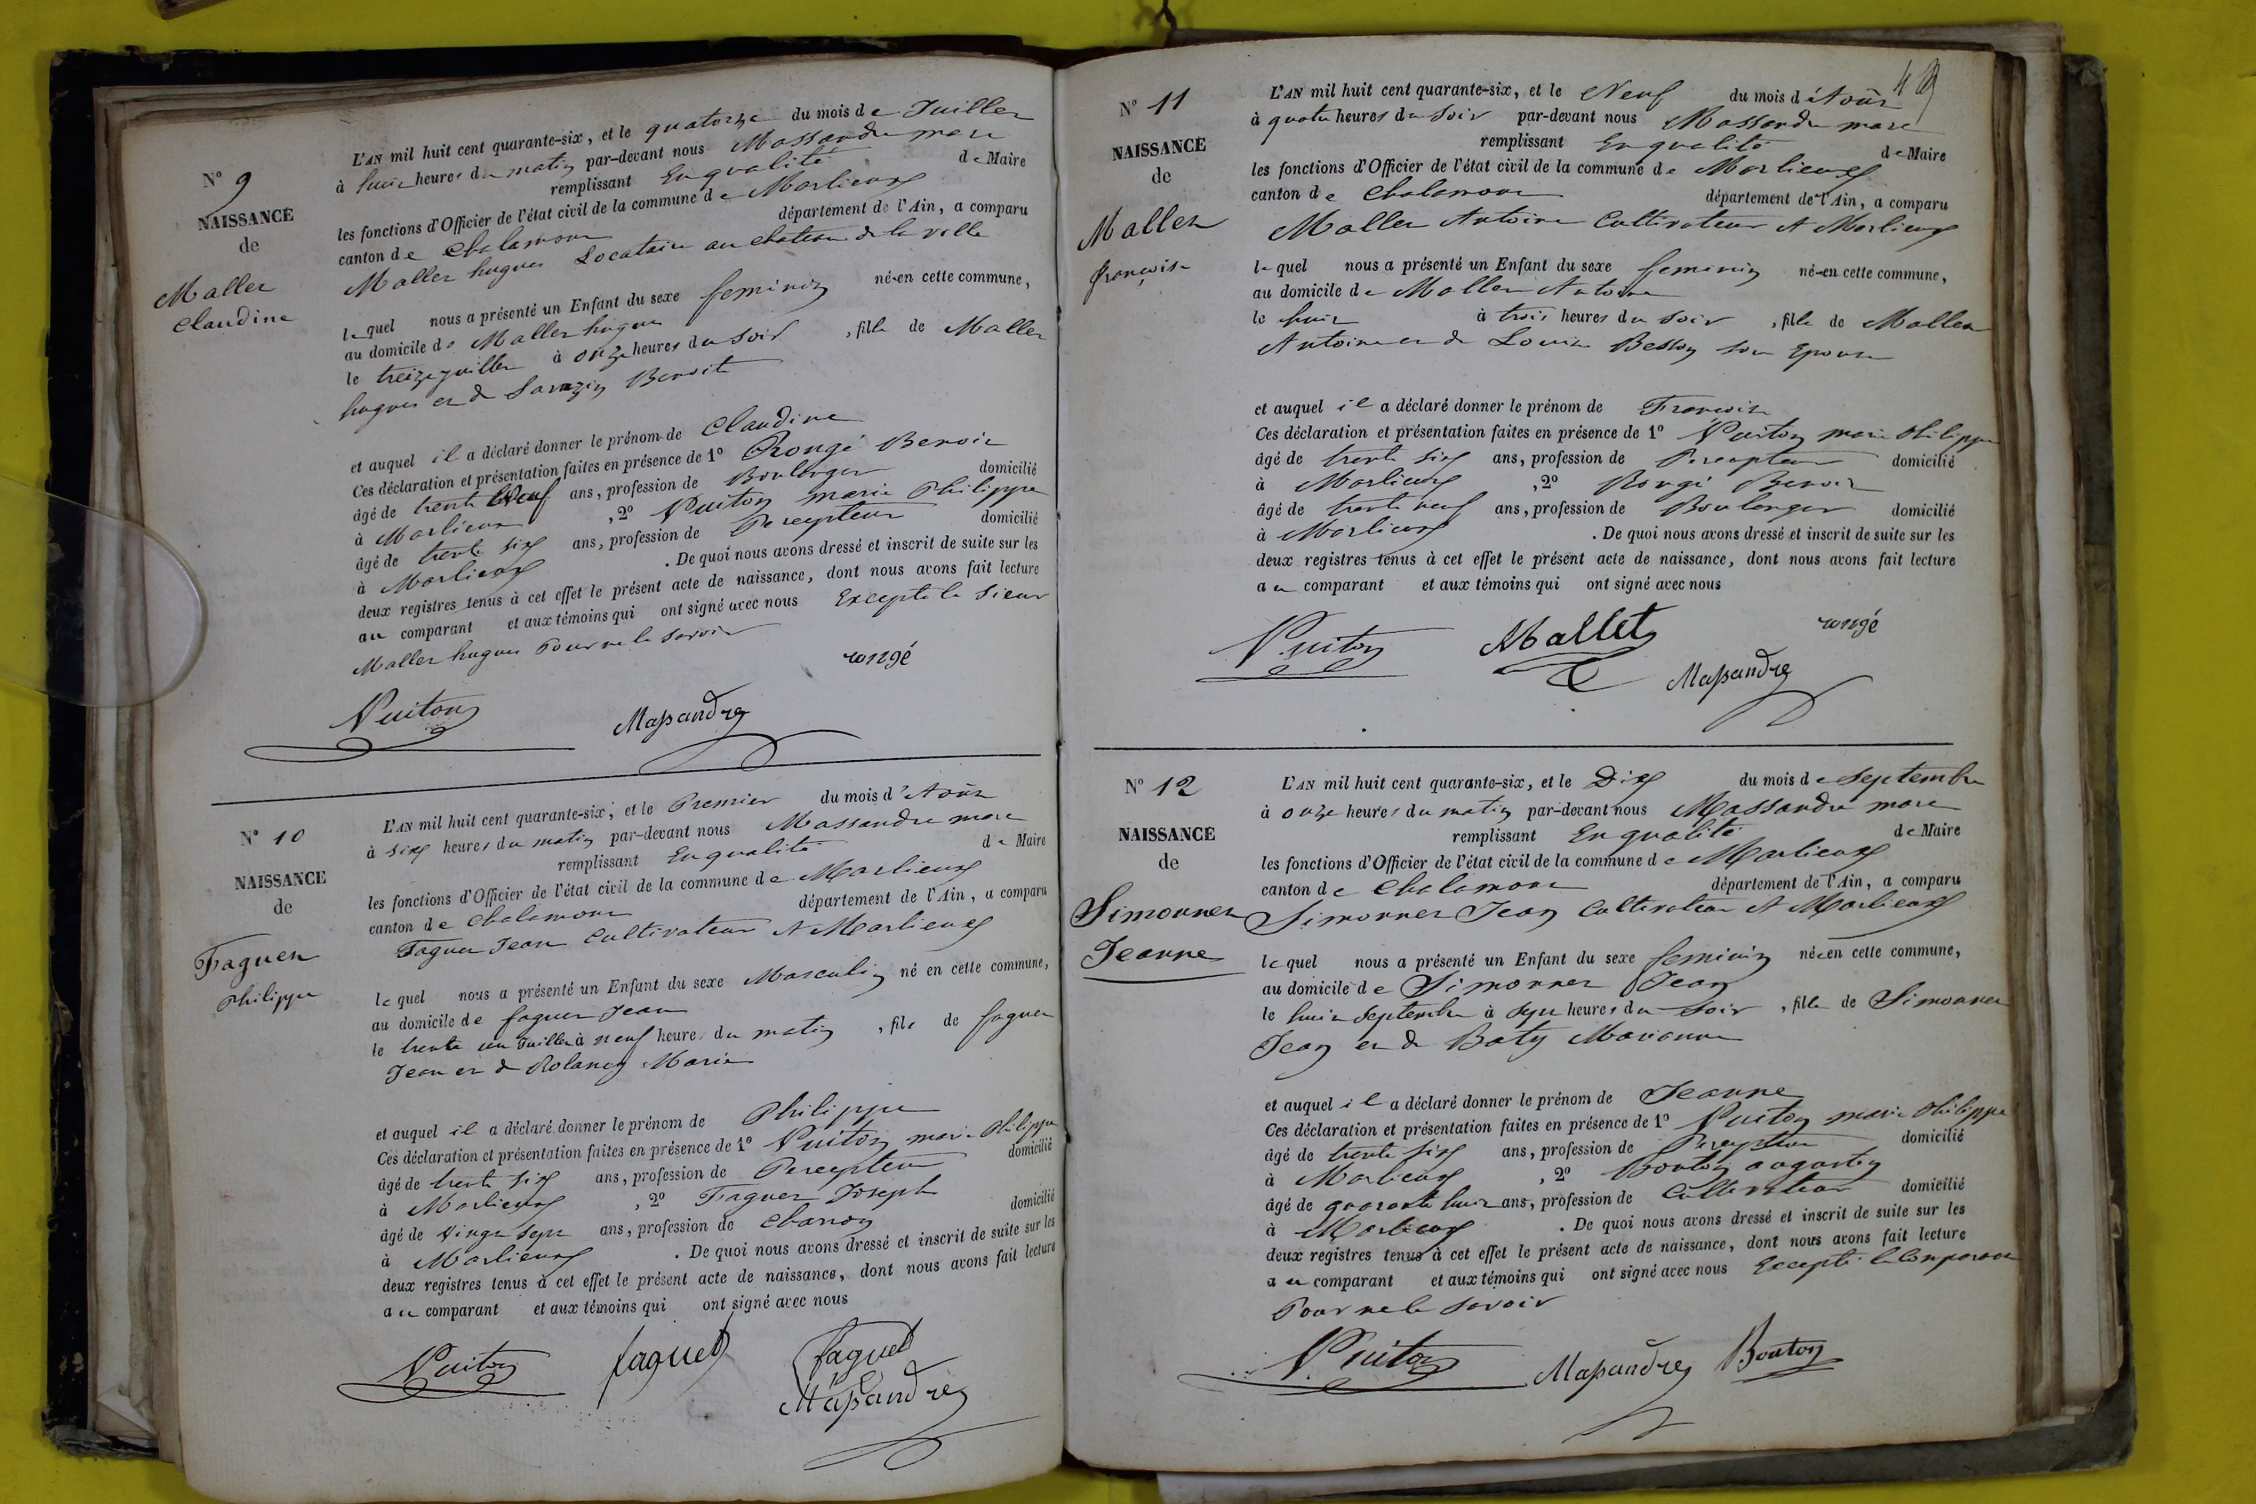 N° 9
NAISSANCE
de
Mallet
Claudine
L'AN mil huit cent quarante-six, et le quatorze du mois de Juillet
à huit heures du matin par-devant nous Massandre marc
remplissant En qualité de Maire
les fonctions d'Officier de l'état civil de la commune de Marlieux
canton de Chalamont département de l'Ain, a comparu
Mallet hugues Locataire au chateau de la ville
lequel nous a présenté un Enfant du sexe feminin né en cette commune,
au domicile de Mallet hugues
le treize juillet à onze heures du soir, fille de Mallet
hugues et de Sarazin Benoite
et auquel il a déclaré donner le prénom de Claudine
Ces déclaration et présentation faites en présence de 1° Rongé Benoit
âgé de trente Neuf ans, profession de Boulanger domicilié
à Marlieux, 2° Vuiton marie Philippe
âgé de trente six ans, profession de Percepteur domicilié
à Marlieux. De quoi nous avons dressé et inscrit de suite sur les
deux registres tenus à cet effet le présent acte de naissance, dont nous avons fait lecture
au comparant et aux témoins qui ont signé avec nous Excepté le Sieur
Mallet hugues Pour ne le savoir
rongé
Vuiton Massandre
N° 10
NAISSANCE
de
Faguet
Philippe
L'AN mil huit cent quarante-six, et le Premier du mois d'Août
à six heures du matin par-devant nous Massandre marc
remplissant En qualité de Maire
les fonctions d'Officier de l'état civil de la commune de Marlieux
canton de Chalamont département de l'Ain, a comparu
Faguet Jean Cultivateur A Marlieux
lequel nous a présenté un Enfant du sexe Masculin né en cette commune,
au domicile de faguet Jean
le trente un Juillet à neuf heures du matin, fils de faguet
Jean et de Roland Marie
et auquel il a déclaré donner le prénom de Philippe
Ces déclaration et présentation faites en présence de 1° Vuiton marie Philippe
âgé de trente six ans, profession de Percepteur domicilié
à Marlieux, 2° Faguet Joseph
âgé de vingt sept ans, profession de charron domicilié
à Marlieux. De quoi nous avons dressé et inscrit de suite sur les
deux registres tenus à cet effet le présent acte de naissance, dont nous avons fait lecture
au comparant et aux témoins qui ont signé avec nous
Vuiton faguet faguet
Massandre
N° 11
NAISSANCE
de
Mallet
françoise
L'AN mil huit cent quarante-six, et le Neuf du mois d'Août
à quatre heures du soir par-devant nous Massandre marc
remplissant En qualité de Maire
les fonctions d'Officier de l'état civil de la commune de Marlieux
canton de Chalamont département de l'Ain, a comparu
Mallet Antoine Cultivateur A Marlieux
lequel nous a présenté un Enfant du sexe feminin né en cette commune,
au domicile de Mallet Antoine
le huit à trois heures du soir, fille de Mallet
Antoine et de Louise Besson son Epouse
et auquel il a déclaré donner le prénom de Françoise
Ces déclaration et présentation faites en présence de 1° Vuiton marie Philippe
âgé de trente six ans, profession de Percepteur domicilié
à Marlieux, 2° Rongé Benoit
âgé de trente neuf ans, profession de Boulanger domicilié
à Marlieux. De quoi nous avons dressé et inscrit de suite sur les
deux registres tenus à cet effet le présent acte de naissance, dont nous avons fait lecture
au comparant et aux témoins qui ont signé avec nous
Vuiton Mallet rongé
Massandre
N° 12
NAISSANCE
de
Simonnet
Jeanne
L'AN mil huit cent quarante-six, et le Dix du mois de Septembre
à onze heures du matin par-devant nous Massandre marc
remplissant En qualité de Maire
les fonctions d'Officier de l'état civil de la commune de Marlieux
canton de Chalamont département de l'Ain, a comparu
Simonnet Jean Cultivateur A Marlieux
lequel nous a présenté un Enfant du sexe feminin née en cette commune,
au domicile de Simonnet Jean
le huit Septembre à sept heures du soir, fille de Simonnet
Jean et de Baty Marianne
et auquel il a déclaré donner le prénom de Jeanne
Ces déclaration et présentation faites en présence de 1° Vuiton marie Philippe
âgé de trente six ans, profession de Percepteur domicilié
à Marlieux, 2° Bouton augustin
âgé de quarante huit ans, profession de Cultivateur domicilié
à Marlieux. De quoi nous avons dressé et inscrit de suite sur les
deux registres tenus à cet effet le présent acte de naissance, dont nous avons fait lecture
au comparant et aux témoins qui ont signé avec nous Excepté le Comparant
Pour ne le savoir
Vuiton Massandre Bouton